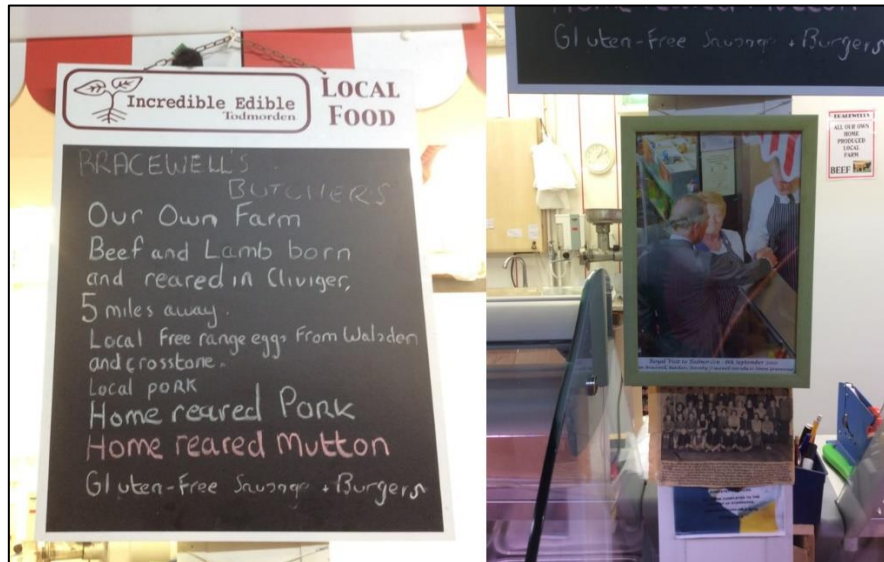 Incredible Edible
Todmorden
LOCAL
FOOD
BRACEWELL'S
BUTCHERS
Our Own Farm
Beef and Lamb born
and reared in Cliviger,
5 miles away.
Local Free range eggs From Walsden
and crosstone.
Local pork
Home reared Pork
Home reared Mutton
Gluten-Free Sausage + Burgers
Home reared Mutton
Gluten-Free Sausage + Burgers
BRACEWELLS
ALL OUR OWN
HOME
PRODUCED
LOCAL
FARM
BEEF
Royal Visit to Todmorden September